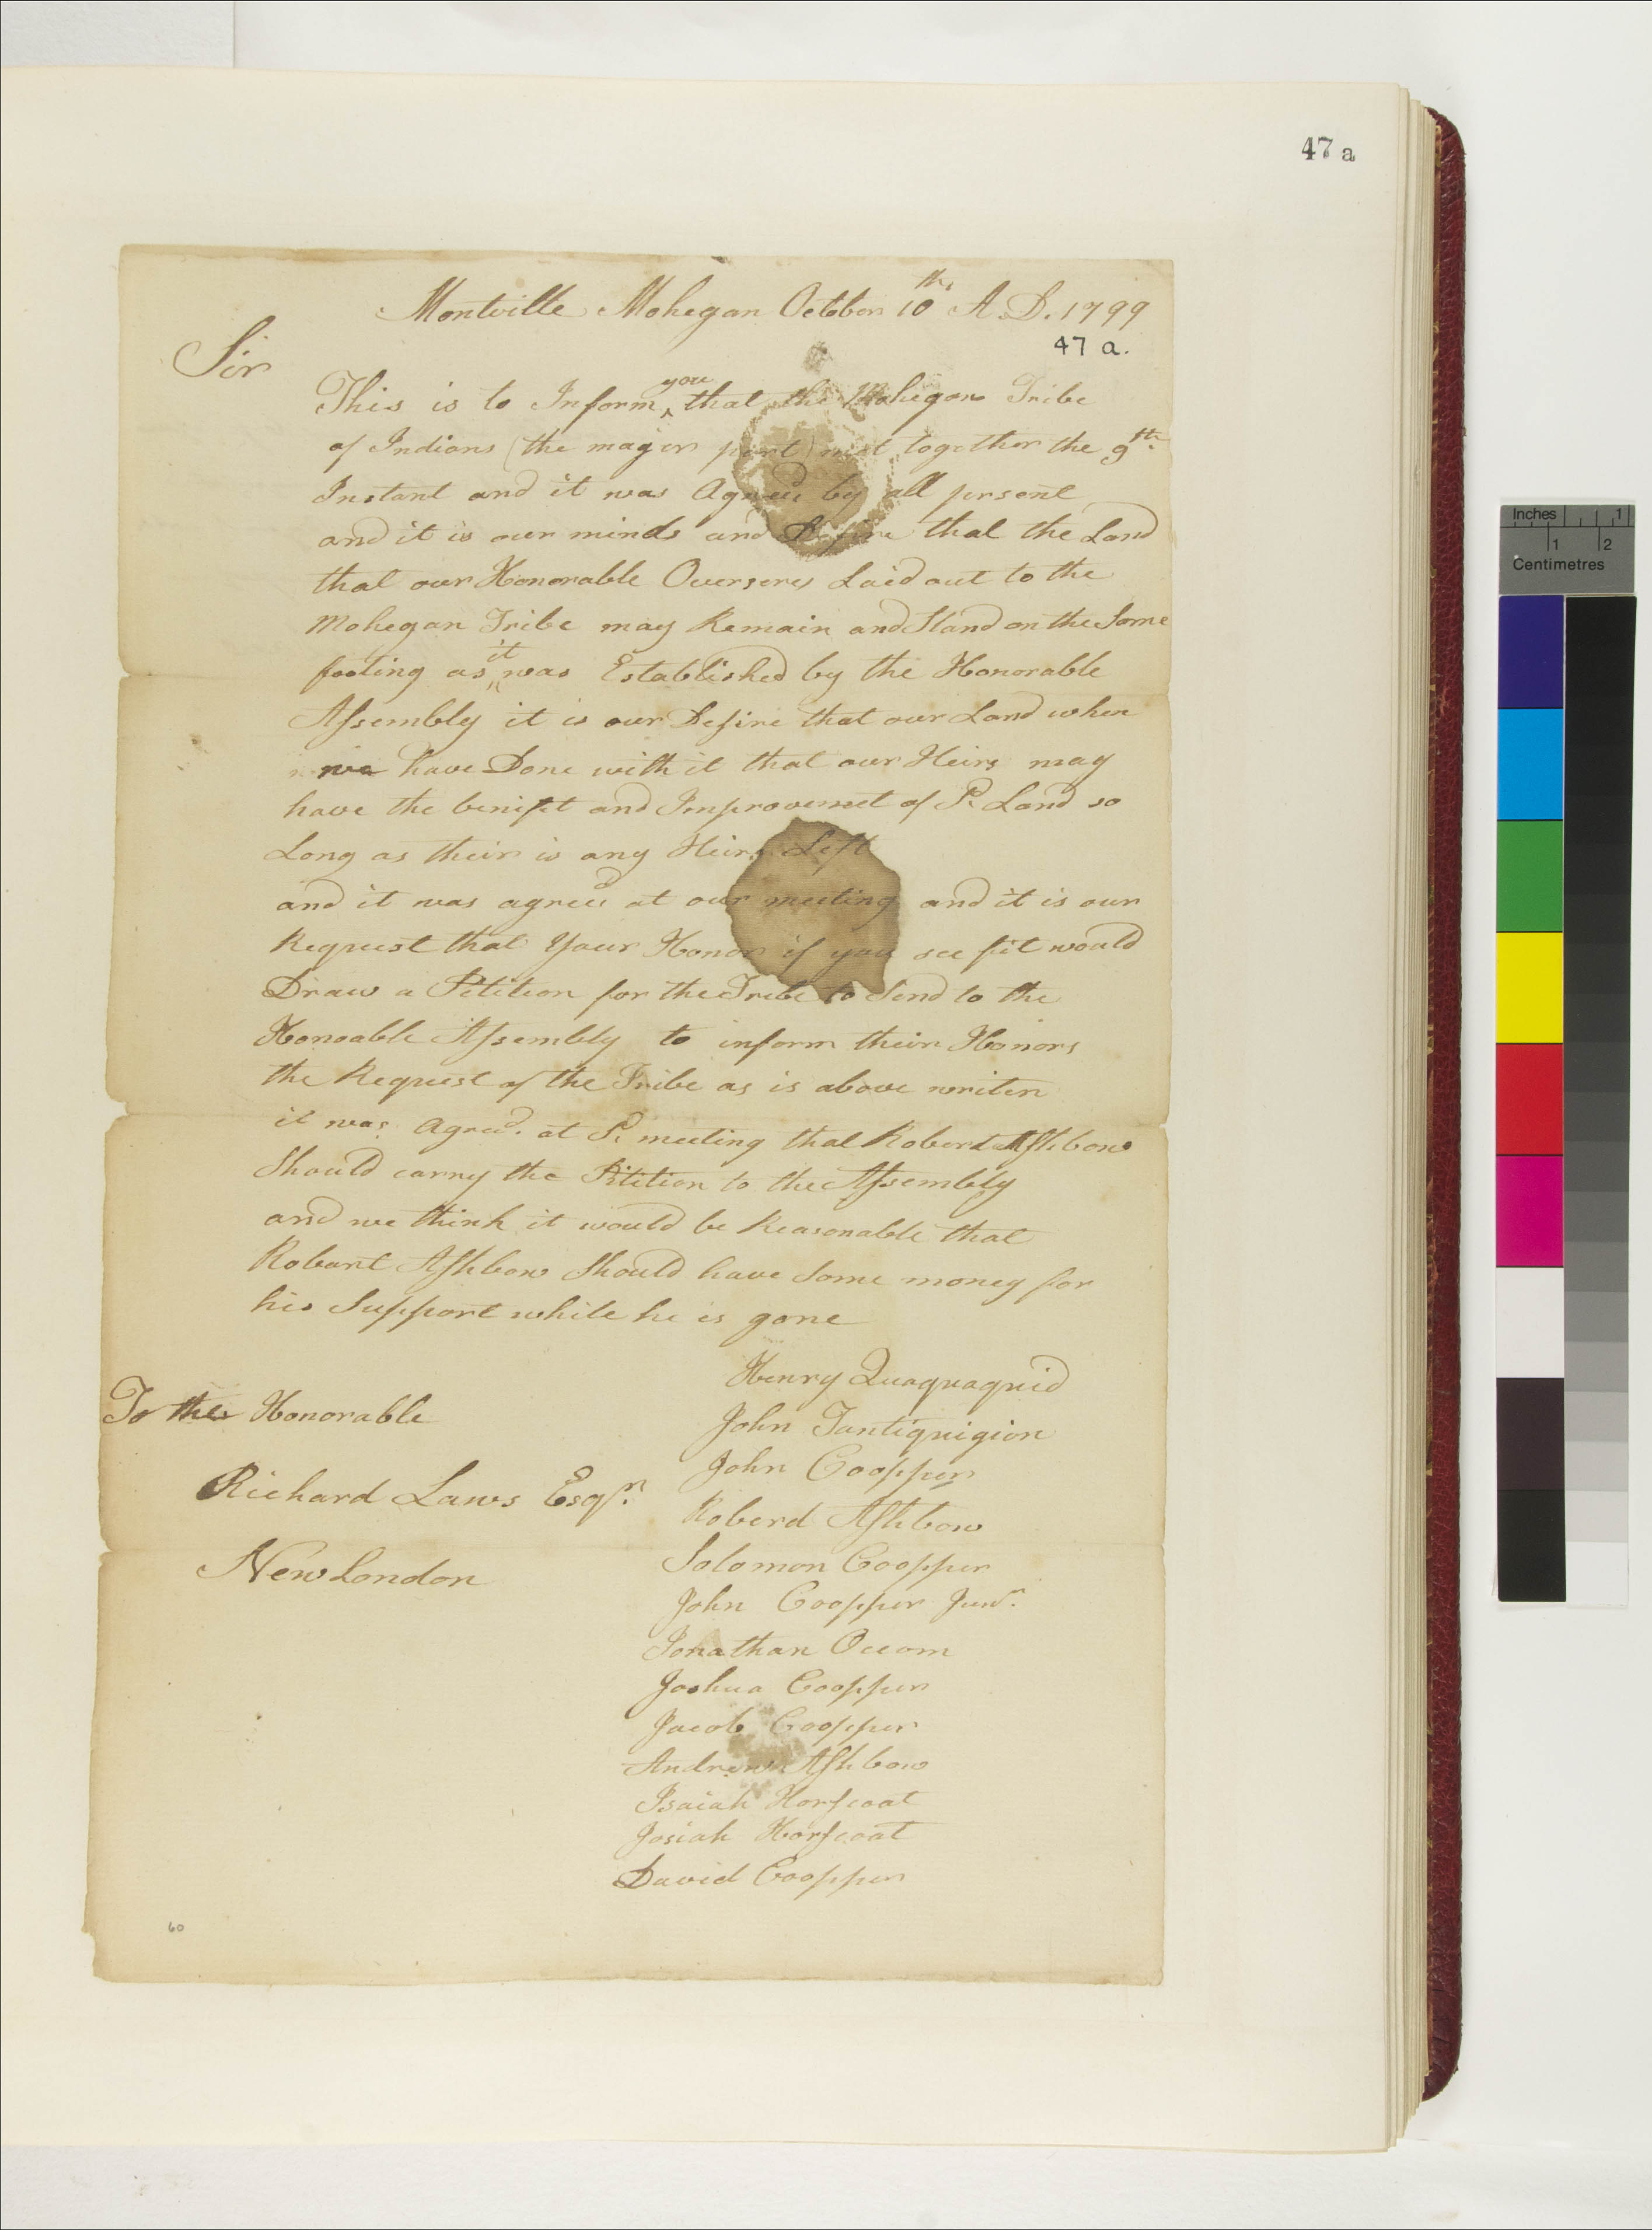 47 a
Montville Mohegan October 10th A.D. 1799
47 a.
Sir
This is to Inform you that the Mohegan Tribe
of Indians (the major part) met together the 9th
Instant and it was Agreed by all present
and it is our minds and Desire that the Land
that our Honorable Overseres Laid out to the
Mohegan Tribe may Remain and Stand on the Same
footing as it was Established by the Honorable
Assembly it is our Desire that our Land when
we have Done with it that our Heirs may
have the benifit and Improvemet of Sd Land so
Long as their is any Heirs Left
and it was agreed at our meeting and it is our
Request that Your Honor if you see fit would
Draw a Petition for the Tribe to Send to the
Honoable Assembly to inform their Honors
the Request of the Tribe as is above writen
it was Agreed at Sd meeting that Roberd Ashbow
Should carry the Petition to the Assembly
and we think it would be Reasonable that
Robart Ashbow Should have Some money for
his Support while he is gone
Henry Quaquaquid
To the Honorable
John Tantiquigion
John Coopper
Richard Laws Esqr.
Roberd Ashbow
New London
Solomon Coopper
John Coopper Junr.
Jonathan Occom
Joshua Coopper
Jacob Coopper
Andrew Ashbow
Isaiah Horscoat
Josiah Horscoat
David Coopper
60
Inches 1
1 2
Centimetres